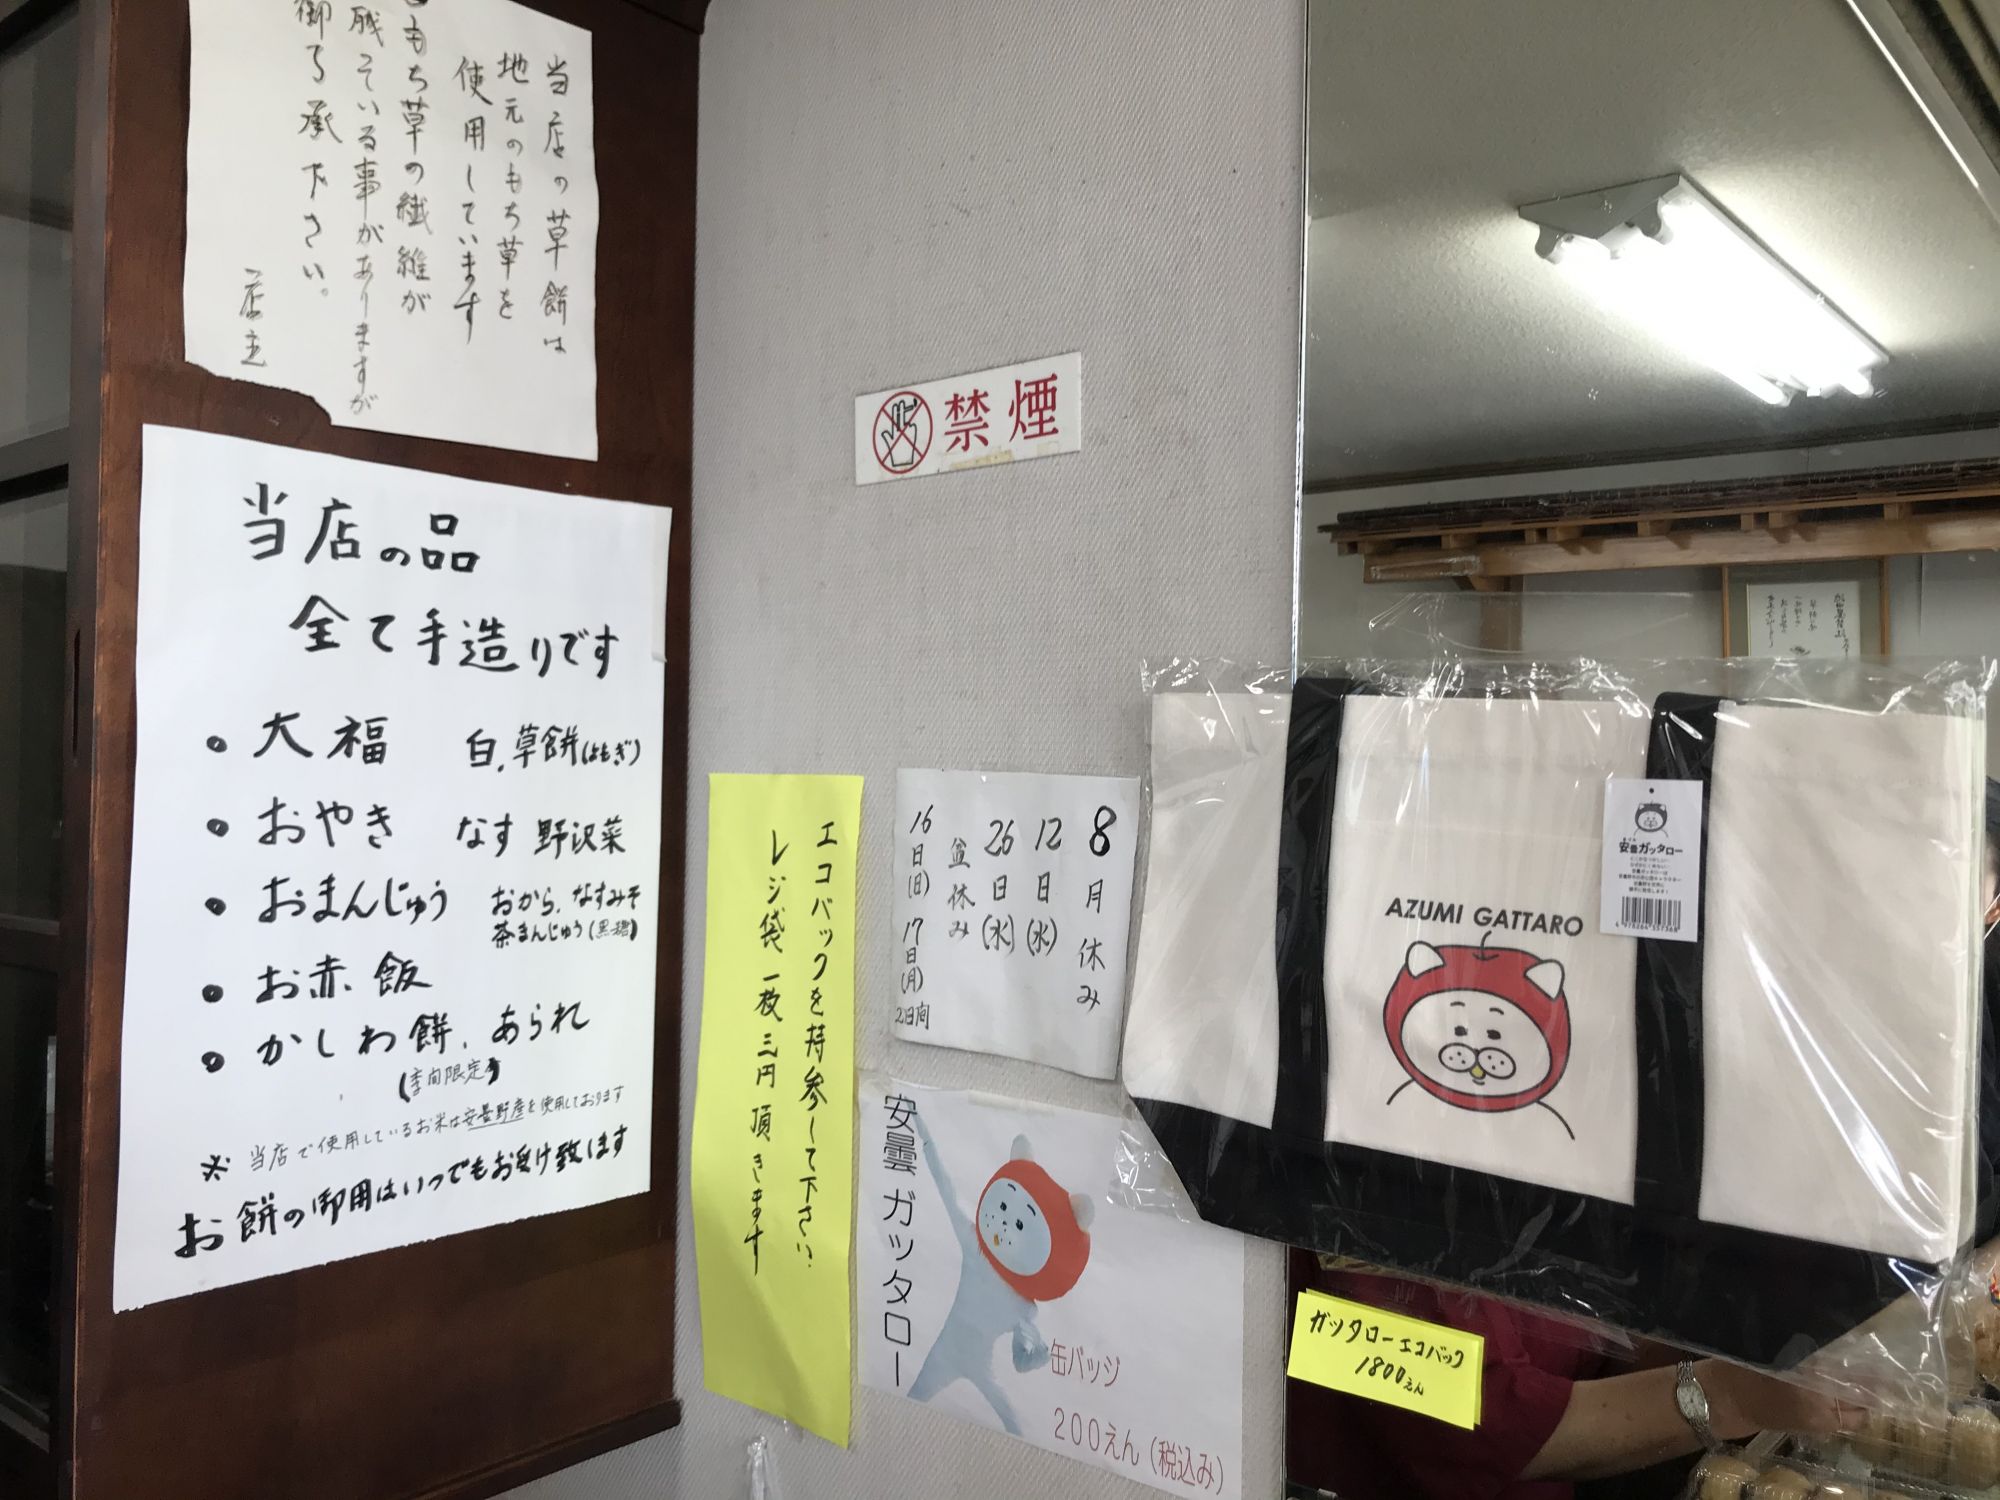 当店の草餅は
地元のもち草を
使用しています
もち草の繊維が
残っている事がありますが
御了承下さい。
店主
当店の品
全て手造りです
• 大福 白、草餅(よもぎ)
• おやき なす 野沢菜
• おまんじゅう おから、なすみそ
茶まんじゅう(黒糖)
• お赤飯
• かしわ餅、あられ
(季節限定)
※ 当店で使用しているお米は安曇野産を使用しております
お餅の御用はいつでもお受け致します
禁煙
エコバックを持参して下さい。
レジ袋一枚三円頂きます
8月休み
12日(水)
26日(水)
盆休み
16日(日) 17日(月) 2日間
安曇ガッタロー
缶バッジ
200えん(税込み)
AZUMI GATTARO
安曇ガッタロー
4 978264 357368
ガッタローエコバック
1800えん